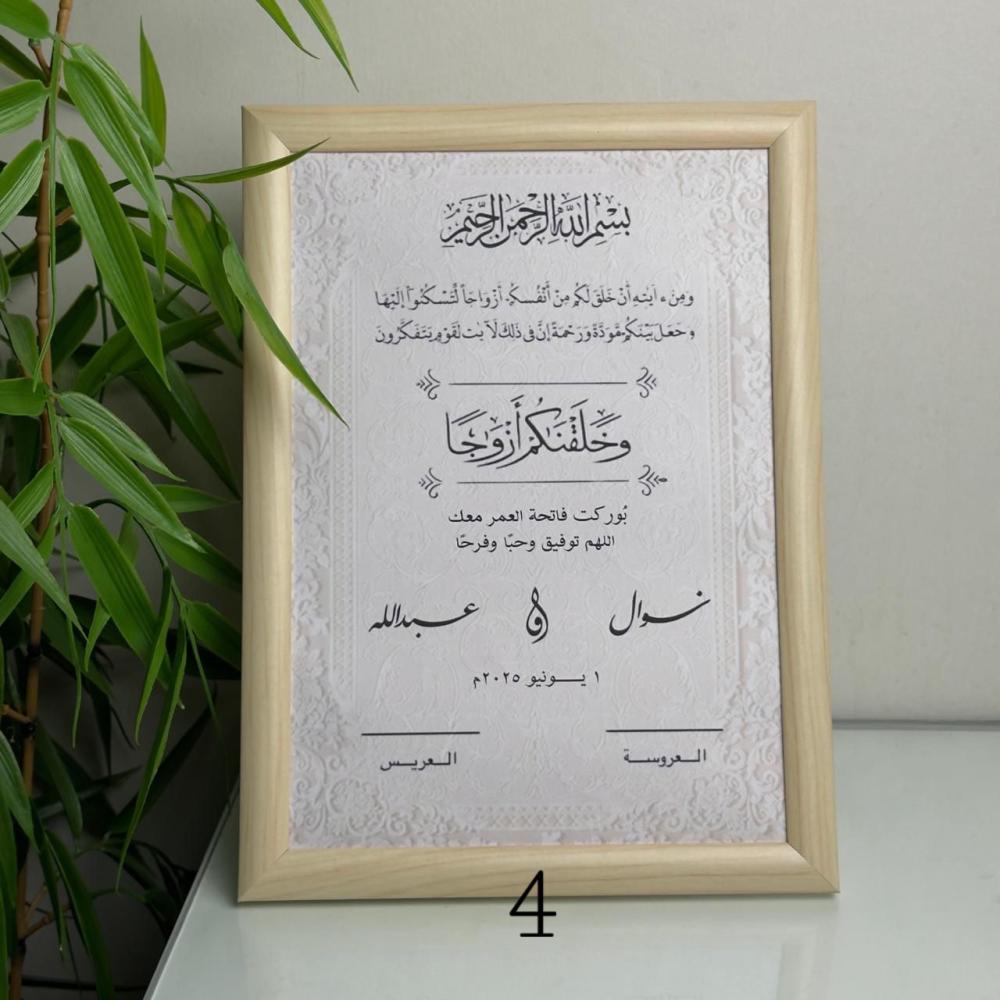 بِسْمِ اللَّهِ الرَّحْمَنِ الرَّحِيمِ
وَمِنْ ءَايَٰتِهِ أَنْ خَلَقَ لَكُم مِنْ أَنْفُسِكُمْ أَزْوَاجًا لِّتَسْكُنُوٓا إِلَيْهَا
وَجَعَلَ بَيْنَكُم مَّوَدَّةً وَرَحْمَةً إِنَّ فِي ذَٰلِكَ لَآيَٰتٍ لِّقَوْمٍ يَتَفَكَّرُونَ
وَخَلَقْنَٰكُمْ أَزْوَٰجًا
بُوركت فاتحة العمر معك
اللهم توفيق وحبًا وفرحًا
نوال و عبدالله
١ يونيو ٢٠٢٥م
العروسة العريس
4